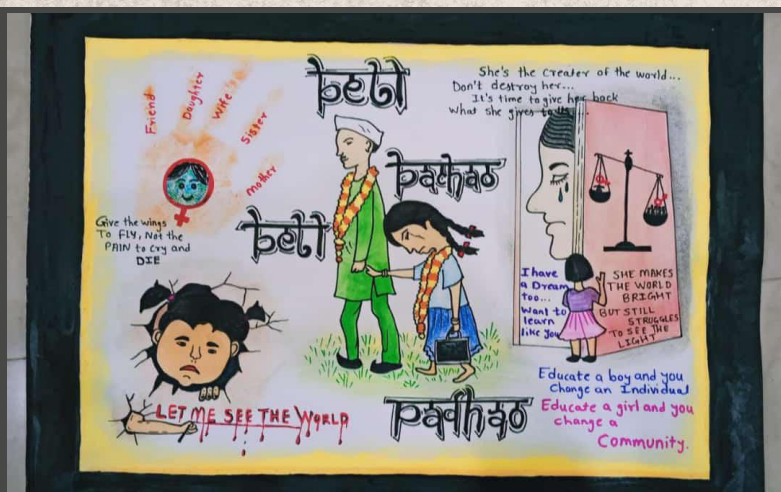 Friend
Daughter
Wife
Sister
Mother
Give the wings
To FLY, Not the
PAIN to Cry and
DIE
LET ME SEE THE WORLD
beti
bachao
beti
padhao
She's the Creater of the world...
Don't destroy her...
It's time to give her back
what she gives to us...
I have
a Dream
too...
Want to
learn
like you
SHE MAKES
THE WORLD
BRIGHT
BUT STILL
STRUGGLES
TO SEE THE
LIGHT
Educate a boy and you
Change an Individual
Educate a girl and you
change a
Community.